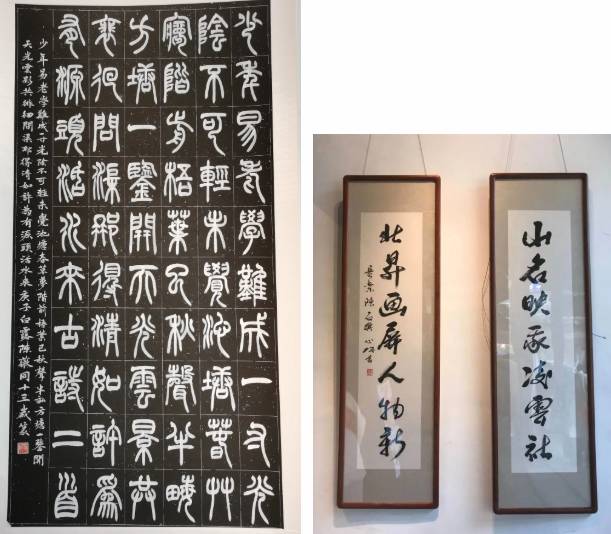 少年易老學難成一寸光
陰不可輕未覺池塘春艸
夢階前梧葉已秋聲半畝
方塘一鑒開天光雲景共
裵回問渠那得清如許為
有源頭活水來古詩二首
少年易老學難成一寸光陰不可輕未覺池塘春草夢階前梧葉已秋聲半畝方塘一鑒開
天光雲影共徘徊問渠那得清如許為有源頭活水來庚子白露陳敬同十三歲篆
山名映凌雲社
北昇画屏人物新